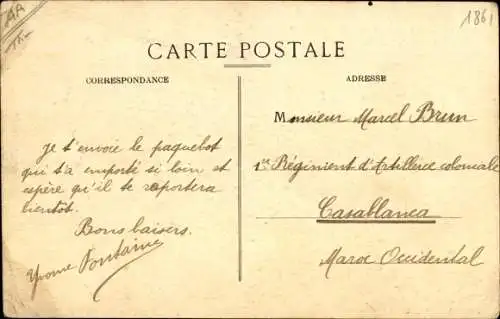 AA
186
CARTE POSTALE
CORRESPONDANCE
ADRESSE
Je t'envoie le paquebot
qui t'a emporté si loin et
espère qu'il te reportera
bientôt.
Bons baisers.
Yvonne Fontaine
Monsieur Marcel Brun
1er Régiment d'Artillerie coloniale
Casablanca
Maroc Occidental